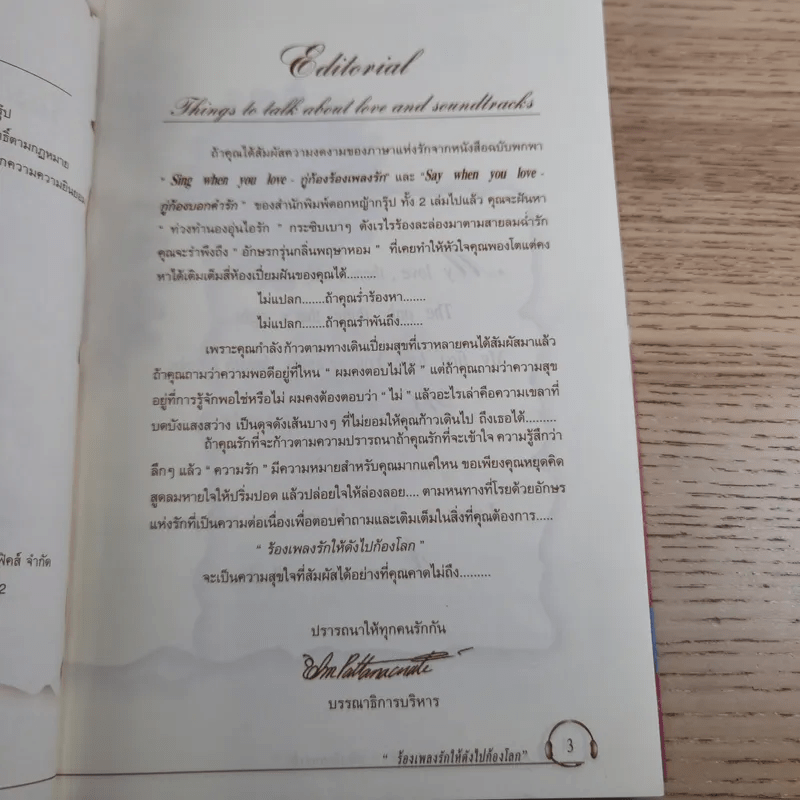 รุ๊ป
ธิ์ตามกฎหมาย
กความความยินยอม
ฟิคส์ จำกัด
2
Editorial
Things to talk about love and soundtracks
ถ้าคุณได้สัมผัสความงดงามของภาษาแห่งรักจากหนังสือฉบับพกพา
“ Sing when you love - กู่ก้องร้องเพลงรัก” และ “Say when you love -
กู่ก้องบอกคำรัก ” ของสำนักพิมพ์ดอกหญ้ากรุ๊ป ทั้ง 2 เล่มไปแล้ว คุณจะฝันหา
“ ท่วงทำนองอุ่นไอรัก ” กระซิบเบาๆ ดังเรไรร้องละล่องมาตามสายลมฉ่ำรัก
คุณจะรำพึงถึง “ อักษรกรุ่นกลิ่นพฤษาหอม ” ที่เคยทำให้หัวใจคุณพองโตแต่คง
หาได้เติมเต็มสี่ห้องเปี่ยมฝันของคุณได้.........
ไม่แปลก.......ถ้าคุณร่ำร้องหา.......
ไม่แปลก.......ถ้าคุณรำพันถึง.......
เพราะคุณกำลังก้าวตามทางเดินเปี่ยมสุขที่เราหลายคนได้สัมผัสมาแล้ว
ถ้าคุณถามว่าความพอดีอยู่ที่ไหน “ ผมคงตอบไม่ได้ ” แต่ถ้าคุณถามว่าความสุข
อยู่ที่การรู้จักพอใช่หรือไม่ ผมคงต้องตอบว่า “ ไม่ ” แล้วอะไรเล่าคือความเขลาที่
บดบังแสงสว่าง เป็นดุจดังเส้นบางๆ ที่ไม่ยอมให้คุณก้าวเดินไป ถึงเธอได้.........
ถ้าคุณรักที่จะก้าวตามความปรารถนาถ้าคุณรักที่จะเข้าใจ ความรู้สึกว่า
ลึกๆ แล้ว “ ความรัก ” มีความหมายสำหรับคุณมากแค่ไหน ขอเพียงคุณหยุดคิด
สูดลมหายใจให้ปริ่มปอด แล้วปล่อยใจให้ล่องลอย.... ตามหนทางที่โรยด้วยอักษร
แห่งรักที่เป็นความต่อเนื่องเพื่อตอบคำถามและเติมเต็มในสิ่งที่คุณต้องการ.....
“ ร้องเพลงรักให้ดังไปก้องโลก ”
จะเป็นความสุขใจที่สัมผัสได้อย่างที่คุณคาดไม่ถึง.........
ปรารถนาให้ทุกคนรักกัน
บรรณาธิการบริหาร
“ ร้องเพลงรักให้ดังไปก้องโลก”
3